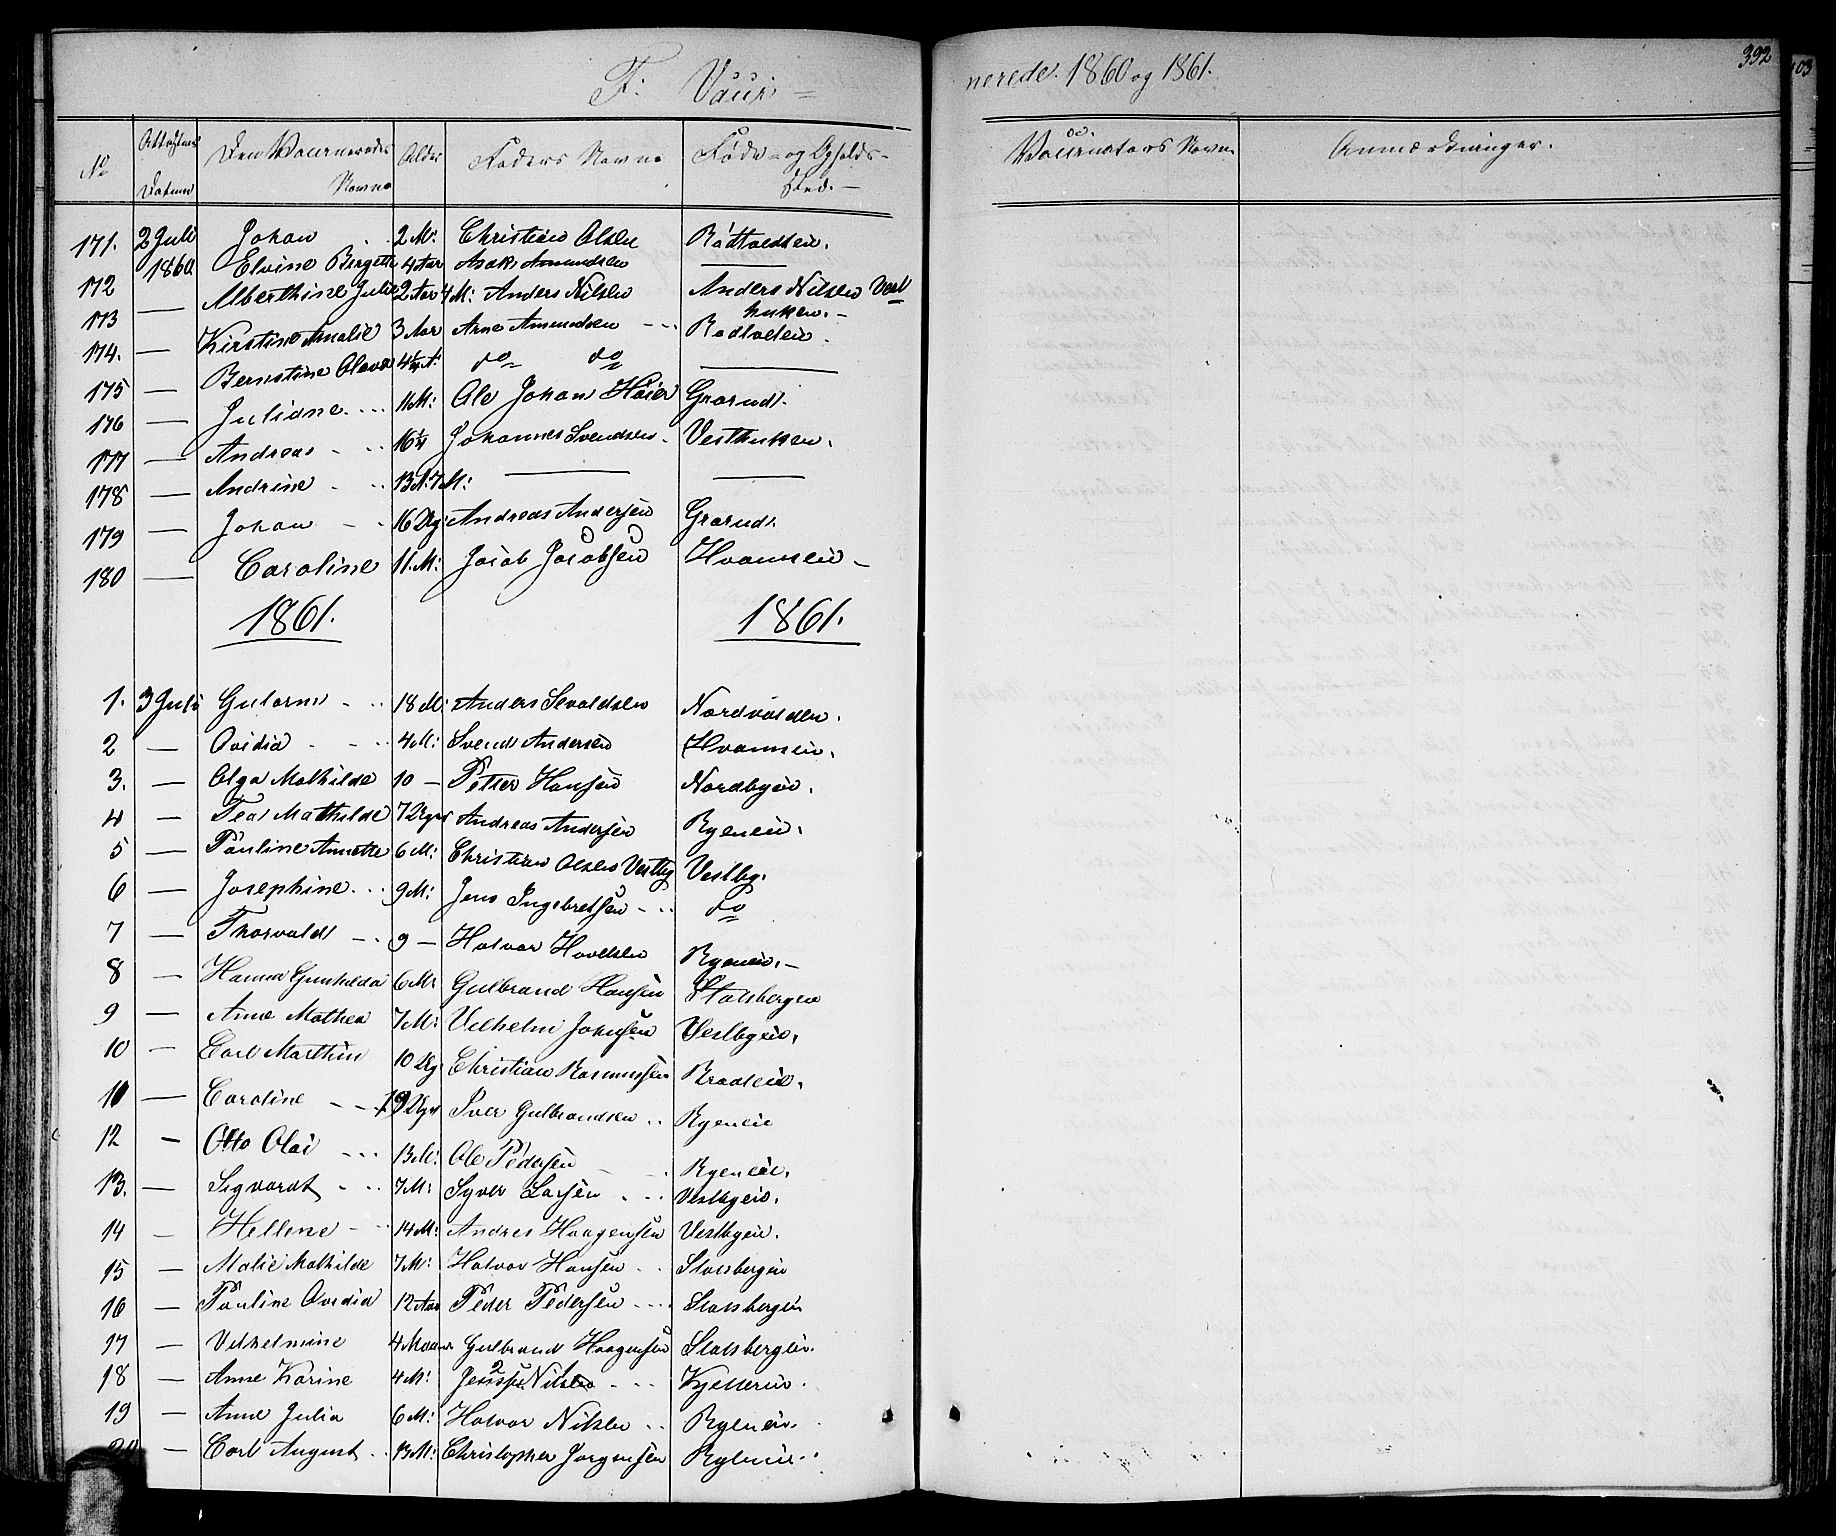 F. Vaccinerede 1860 og 1861.
392
No
Attestens Datum
Den Vaccineredes Navne
Alder
Faders Navne
Føde- og Opholds-Sted.
Vaccinators Navn
Anmærkninger.
171. 2 Juli 1860 Johan 2 M: Christian Olsen Rødtvedteie.
172 — Elvine Birgitte 4 Aar Asak Amundsen —
173 — Alberthine Julie 2 Aar 4 M: Anders Nilsen Anders Nilsen Vesthuken.
174. — Kirstine Amalie 3 Aar Arne Amundsen Rødtvedteie.
175 — Bernstine Olava 4½ A: do do —
176 — Juliane 11 M: Ole Johan Høier Grorud.
177 — Andreas 16¼ Johannes Svendsen Vesthuken.
178 — Andrine 13 A. 7 M: — —
179 — Johan 16 Ug: Andreas Andersen Grorud.
180 — Caroline 11. M: Jacob Jacobsen Hvameie
1861. 1861.
1. 3 Juli Gulorm 18 M: Anders Sevaldsen Nordvolden.
2 — Ovidia 4 M: Svend Andersen Hvameie.
3. — Olga Mathilde 10 — Petter Hansen Nordbyeie.
4 — Thea Mathilde 7 Uger Andreas Andersen Ryeneie.
5 — Pauline Annette 6 M: Christian Olsen Vestby Vestby.
6 — Josephine 9 M: Jens Ingebretsen do
7 — Thorvald 9 — Halvor Hovelsen Ryeneie.
8 — Hanna Gunhilda 6 M: Gulbrand Hansen Stalsbergeie
9 — Anne Mathea 7 M: Vilhelm Johnsen Vestbyeie.
10 — Carl Marthin 10 Ug. Christian Rasmussen Braateie.
11 — Caroline 19 Uger Iver Gulbrandsen Ryeneie
12 — Otto Olai 13 M: Ole Pedersen Ryeneie.
13. — Sigvardt 7 M: Syver Larsen Vestbyeie.
14 — Hellene 14 M: Andres Haagensen Vestbyeie.
15 — Malie Mathilde 7 M: Halvor Hansen Stalsbergeie
16 — Pauline Ovidia 12 Aar Peder Pedersen Stalsbergeie
17 — Vilhelmine 4 Maaner Gulbrand Haagensen Stalsbergeie.
18 — Anne Karine 4 M: Nilsen Kjellereie.
19 — Anne Julia 6 M: Halvor Nilsen Ryeneie.
20 — Carl August 13 M: Christopher Jørgensen Ryeneie.